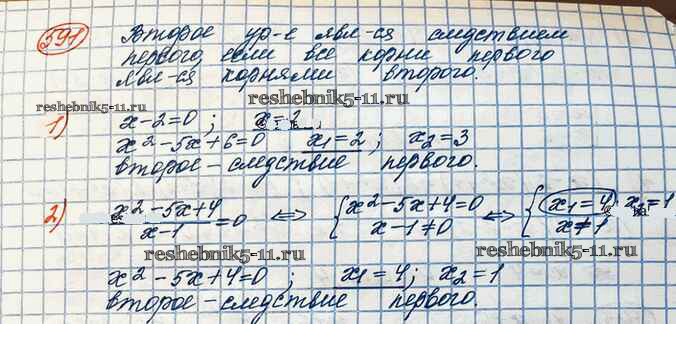 591 Второе ур-е явл-ся следствием
первого, если все корни первого
явл-ся корнями второго.
reshebnik5-11.ru
reshebnik5-11.ru
1) x-2=0; x=2,
x²-5x+6=0 x₁=2; x₂=3
второе - следствие первого.
2) x²-5x+4/x-1=0 ⇔ {x²-5x+4=0 x-1≠0 ⇔ {x₁=4, x₂=1 x≠1
reshebnik5-11.ru
reshebnik5-11.ru
x²-5x+4=0; x₁=4; x₂=1
второе - следствие первого.